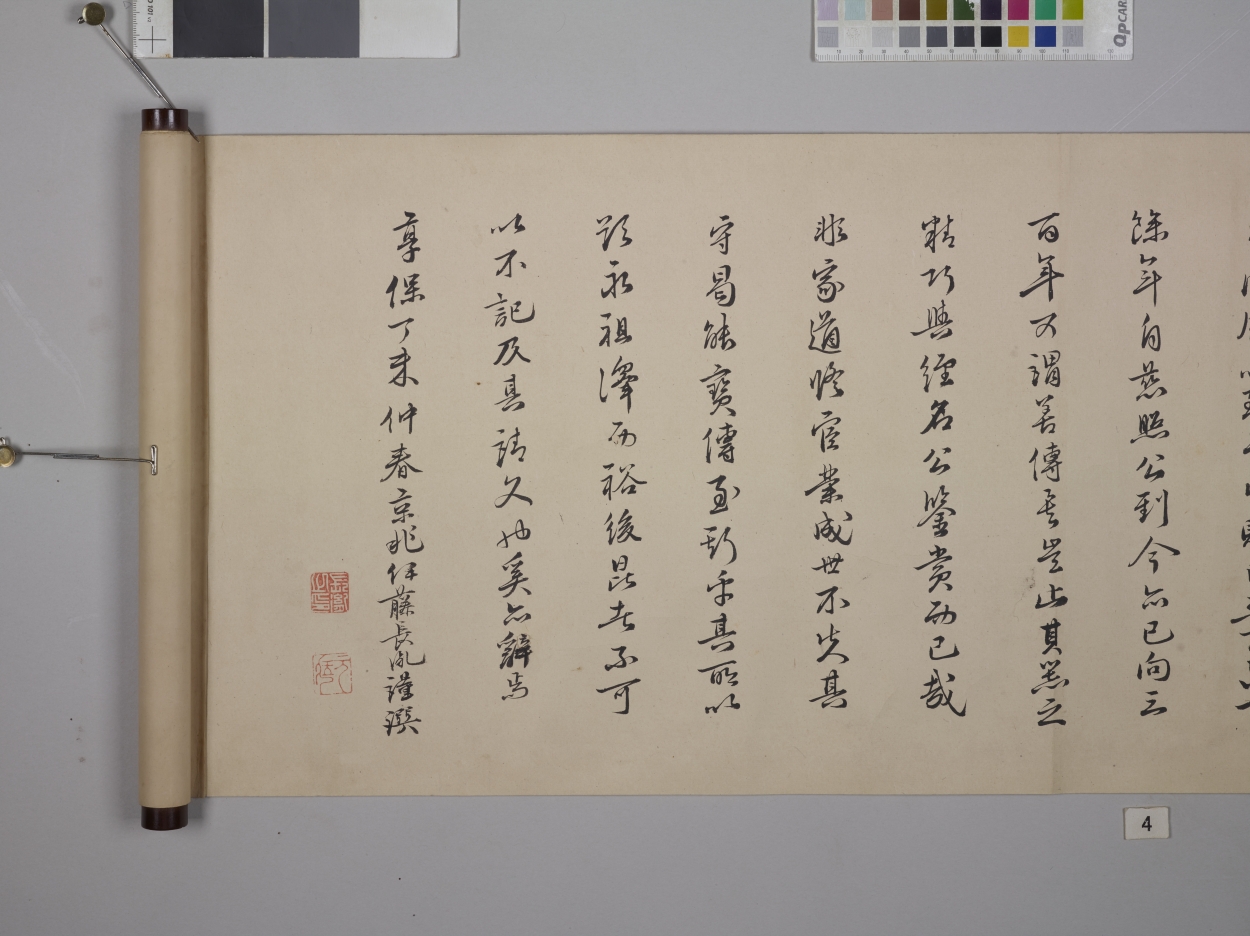 餘年自慈照公到今亦已向三
百年可謂善傳矣豈止其器之
精巧與經名公鑒賞而已哉
非家道修官業成世不失其
守曷能寶傳至斯乎其所以
永祖澤而裕後昆者不可
以不記及其請文也奚亦辭焉
享保丁未仲春京兆伊藤長胤謹撰
4
QPCARD